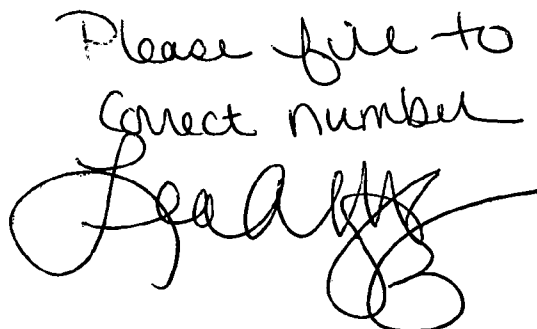 Please file to
correct number